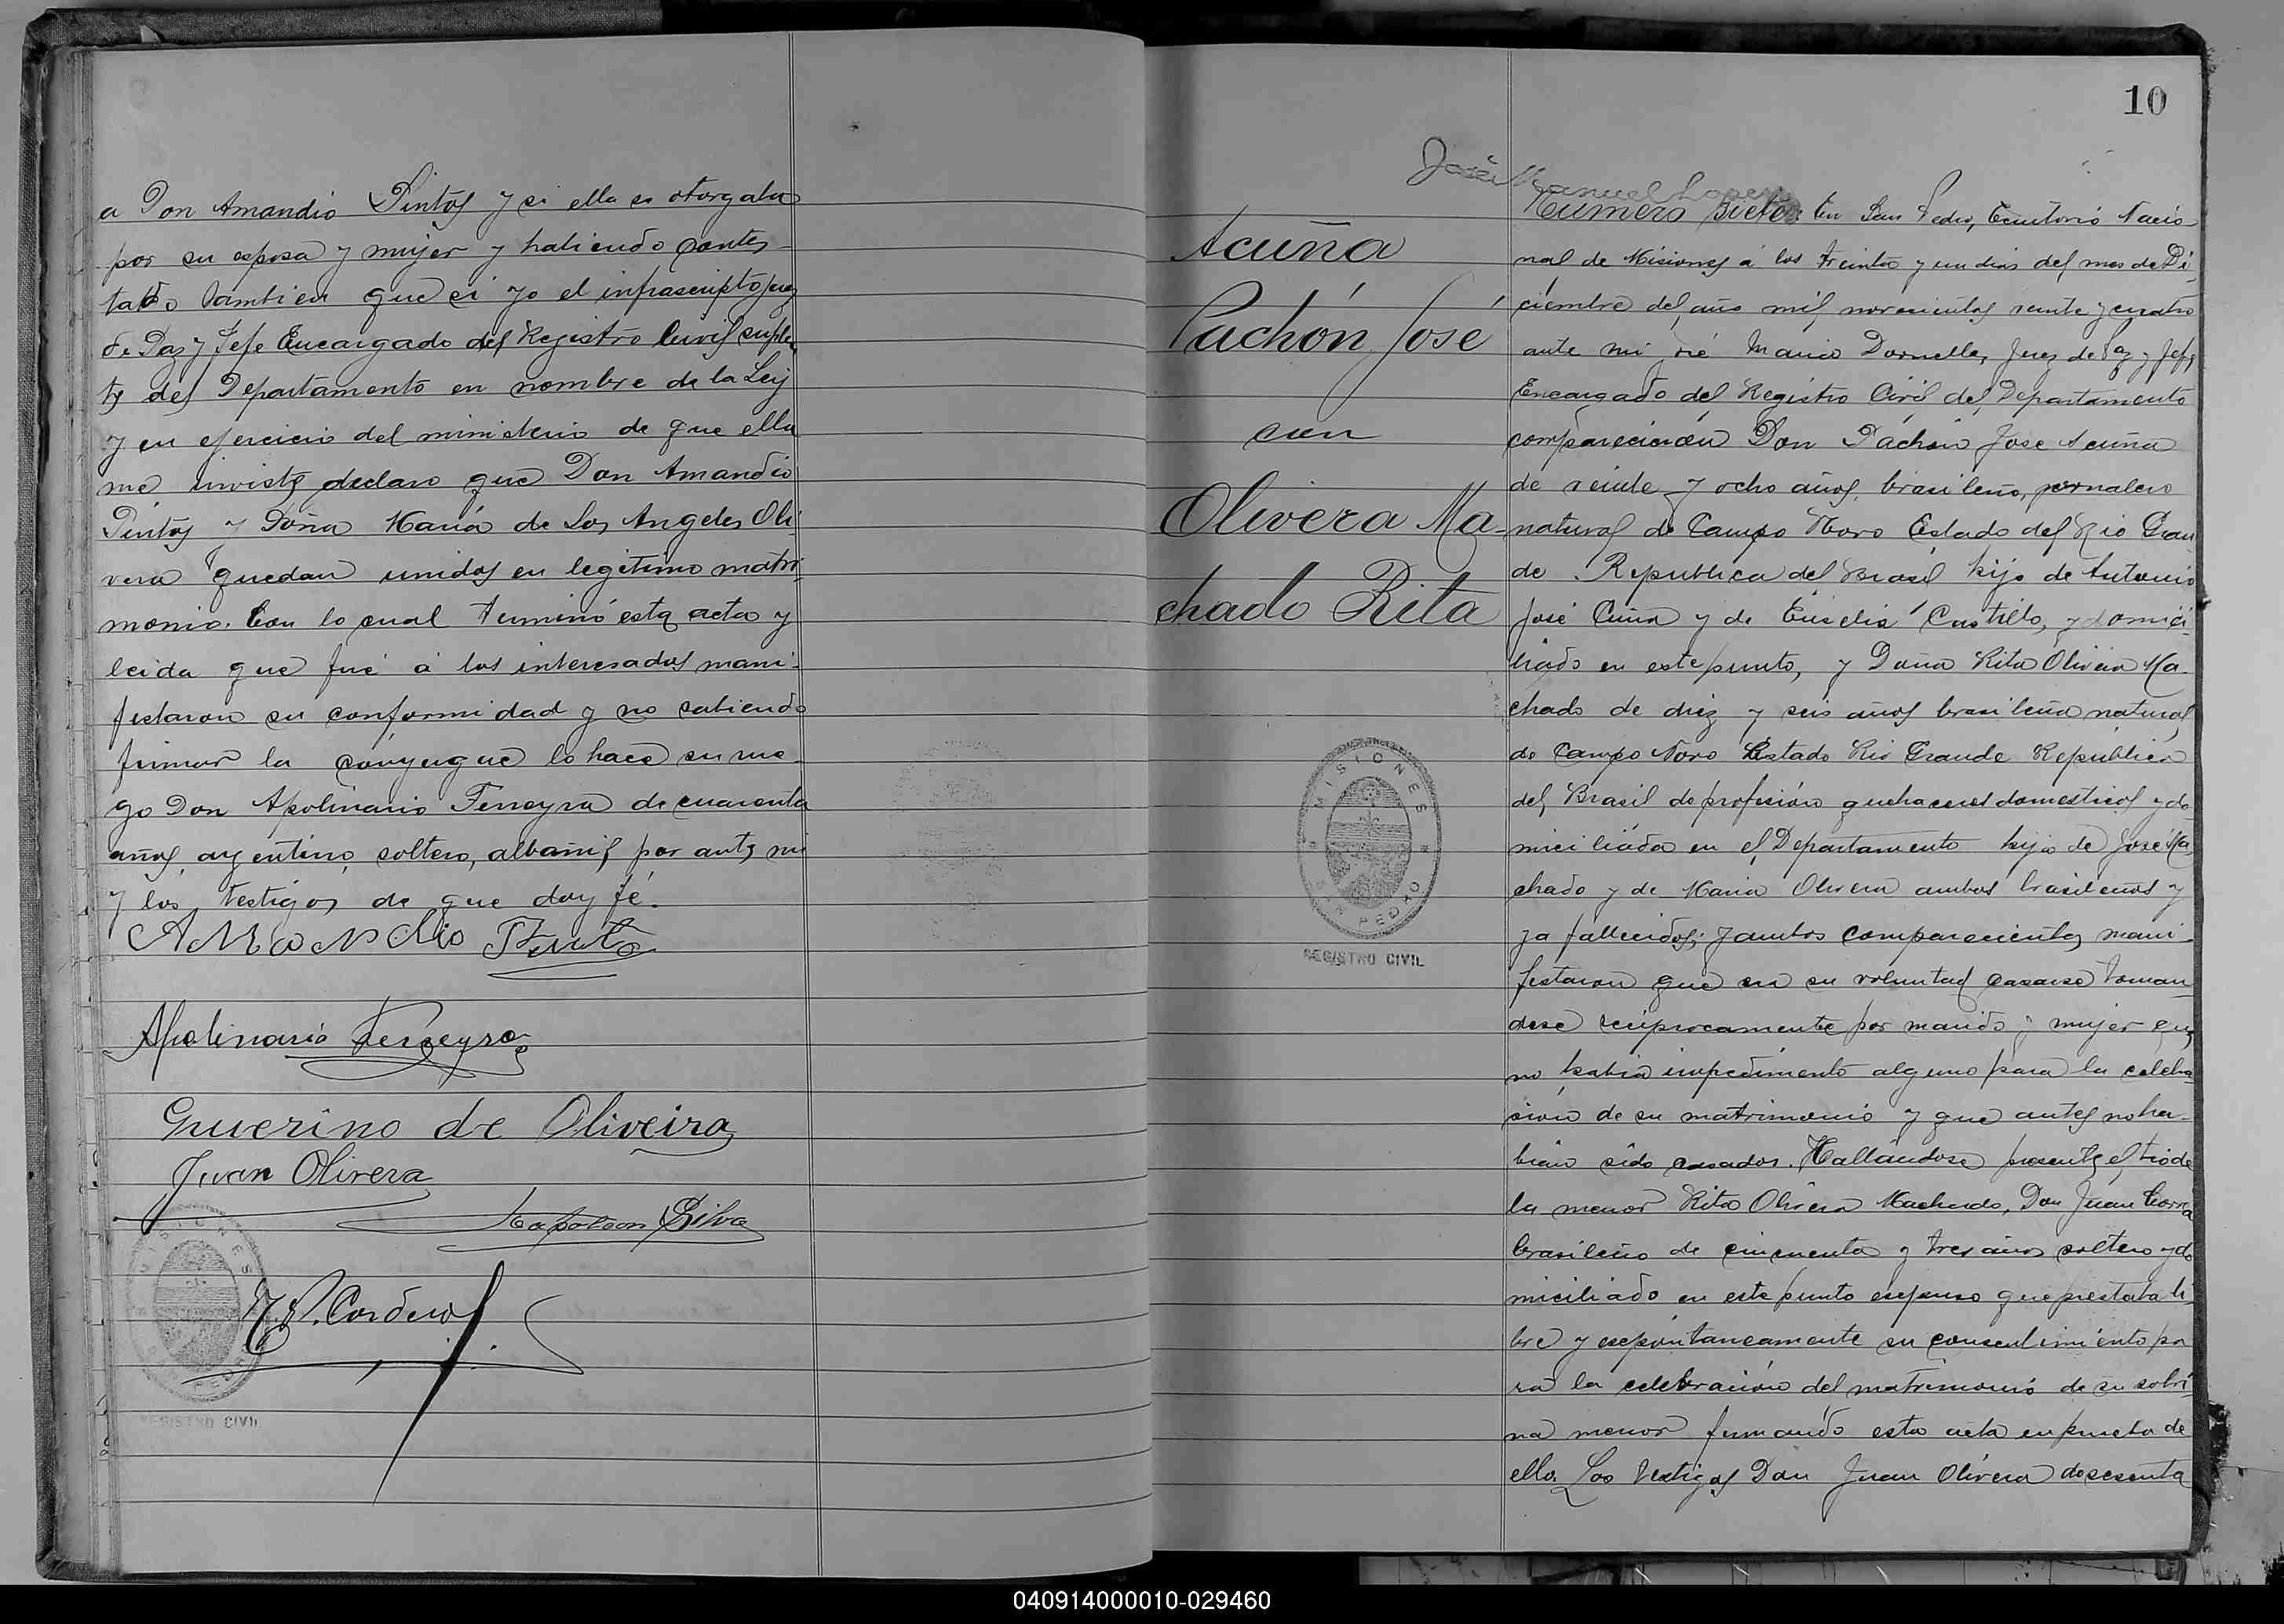 a Don Amandio Pintos y si ella se otorgaba
por su esposa y mujer y habiendo contes-
tado tambien que si yo el infrascripto juez
de Paz y Jefe Encargado del Registro Civil suplen
te del Departamento en nombre de la Ley
y en ejercicio del ministerio de que ella
me inviste declaro que Don Amandio
Pintos y Doña Maria de Los Angeles Oli-
vera quedan unidos en legitimo matri-
monio. Con lo cual terminó esta acta y
leida que fué á los interesados mani-
festaron su conformidad y no sabiendo
firmar la conyugue lo hace su rue-
go Don Apolinario Ferreyra de cuarenta
años, argentino, soltero, albañil, por ante mi
y los testigos de que doy fé.
Amandio Pinto
Apolinario Ferreyra
Guerino de Oliveira
Juan Olivera
Napoleon Silva
Cordero
MISIONES
SAN PEDRO
REGISTRO CIVIL
10
José Manuel Lopez
Acuña
Pachón José
con
Olivera Ma-
chado Rita
MISIONES
SAN PEDRO
REGISTRO CIVIL
Número Siete: En San Pedro, Territorio Nacio-
nal de Misiones á los treinta y un dias del mes de Di-
ciembre del año mil novecientos veinte y cuatro
ante mi José Mario Dornelles, Juez de Paz y Jefe
Encargado del Registro Civil del Departamento
comparecieron Don Pachón Jose Acuña
de veinte y ocho años, brasileño, jornalero
natural de Campo Novo Estado del Rio Gran
de Republica del Brasil hijo de Antonio
José Cuña y de Castillo, y domici-
liado en este punto, y Doña Rita Olivera Ma-
chado de diez y seis años brasileña natural
de Campo Novo Estado Rio Grande Republica
del Brasil de profesión quehaceres domesticos y do
miciliada en el Departamento hija de José Ma-
chado y de Maria Olivera ambos brasileños y
ya fallecidos; y ambos comparecientes mani-
festaron que era su voluntad casarse toman-
dose reciprocamente por marido y mujer que
no habia impedimento alguno para la celebra-
sión de su matrimonio y que antes no ha-
bian sido casados. Hallandose presente el tio de
la menor Rita Olivera Machado, Don Juan Correa
brasileño de cincuenta y tres años soltero y do
miciliado en este punto expuso que prestaba li-
bre y espontaneamente su consentimiento pa
ra la celebración del matrimonio de su sobri-
na menor firmando esta acta en prueba de
ello. Los testigos Don Juan Olivera de sesenta
040914000010-029460